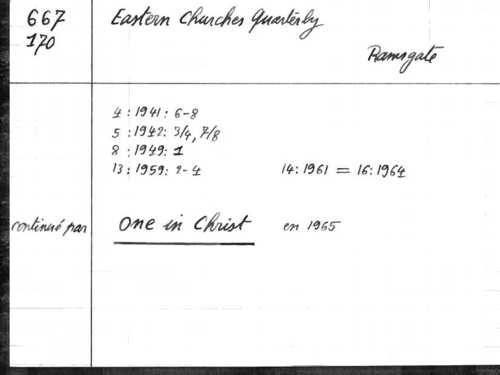 667 Eastern Churches Quarterly
170
Ramsgate
4 : 1941 : 6-8
5 : 1942 : 3/4, 7/8
8 : 1949 : 1
13 : 1959 : 2-4 14 : 1961 = 16 : 1964
continué par One in Christ en 1965